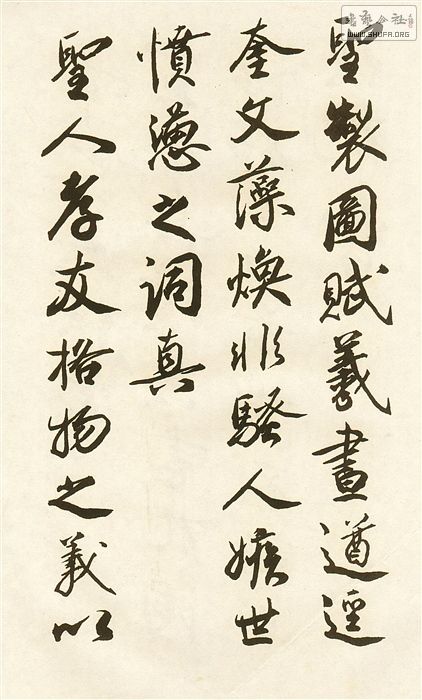 聖製圖賦羲畫遒逕
奎文藻煥非騷人嫉世
憤懣之詞真
聖人孝友格物之義以
WWW.SHUFA.ORG